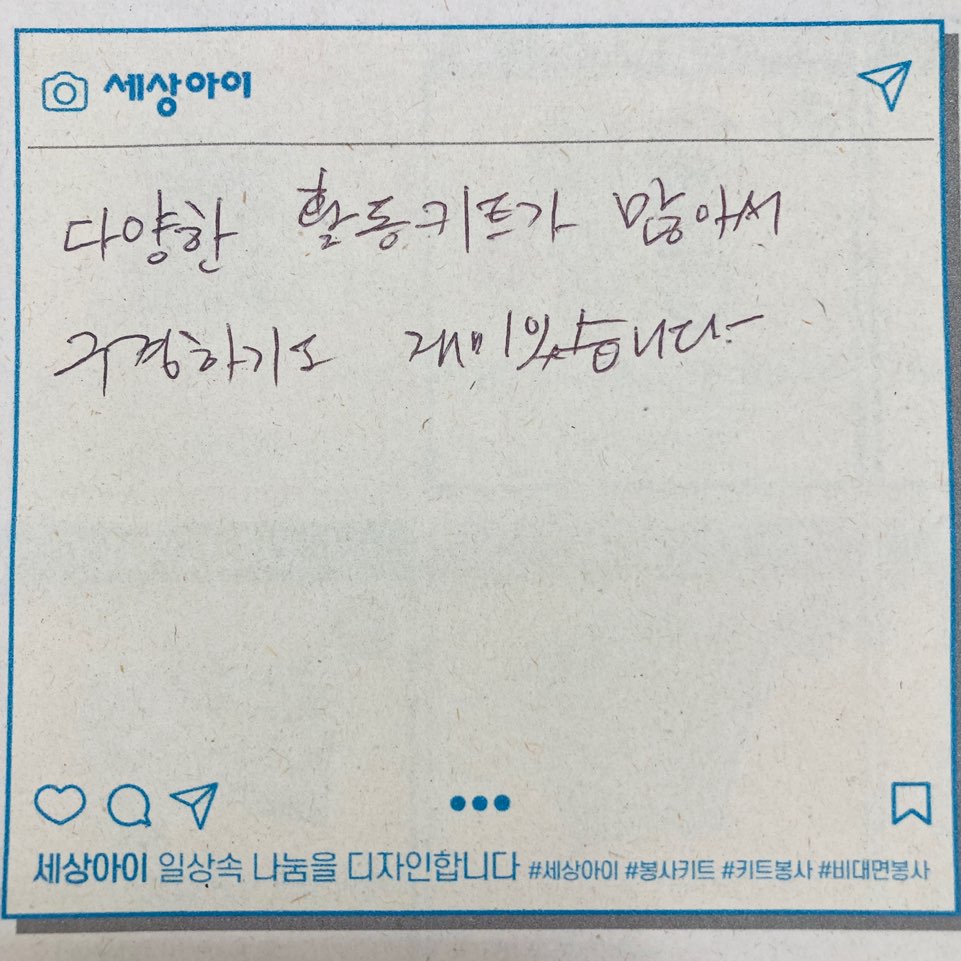 세상아이
다양한 활동키트가 많아서
구경하기도 재미있습니다-
세상아이 일상속 나눔을 디자인합니다 #세상아이 #봉사키트 #키트봉사 #비대면봉사